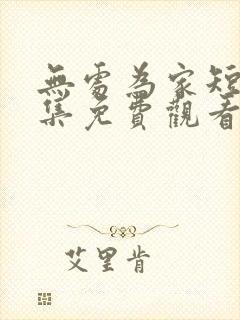 無處為家短
集免費觀看
艾里肯